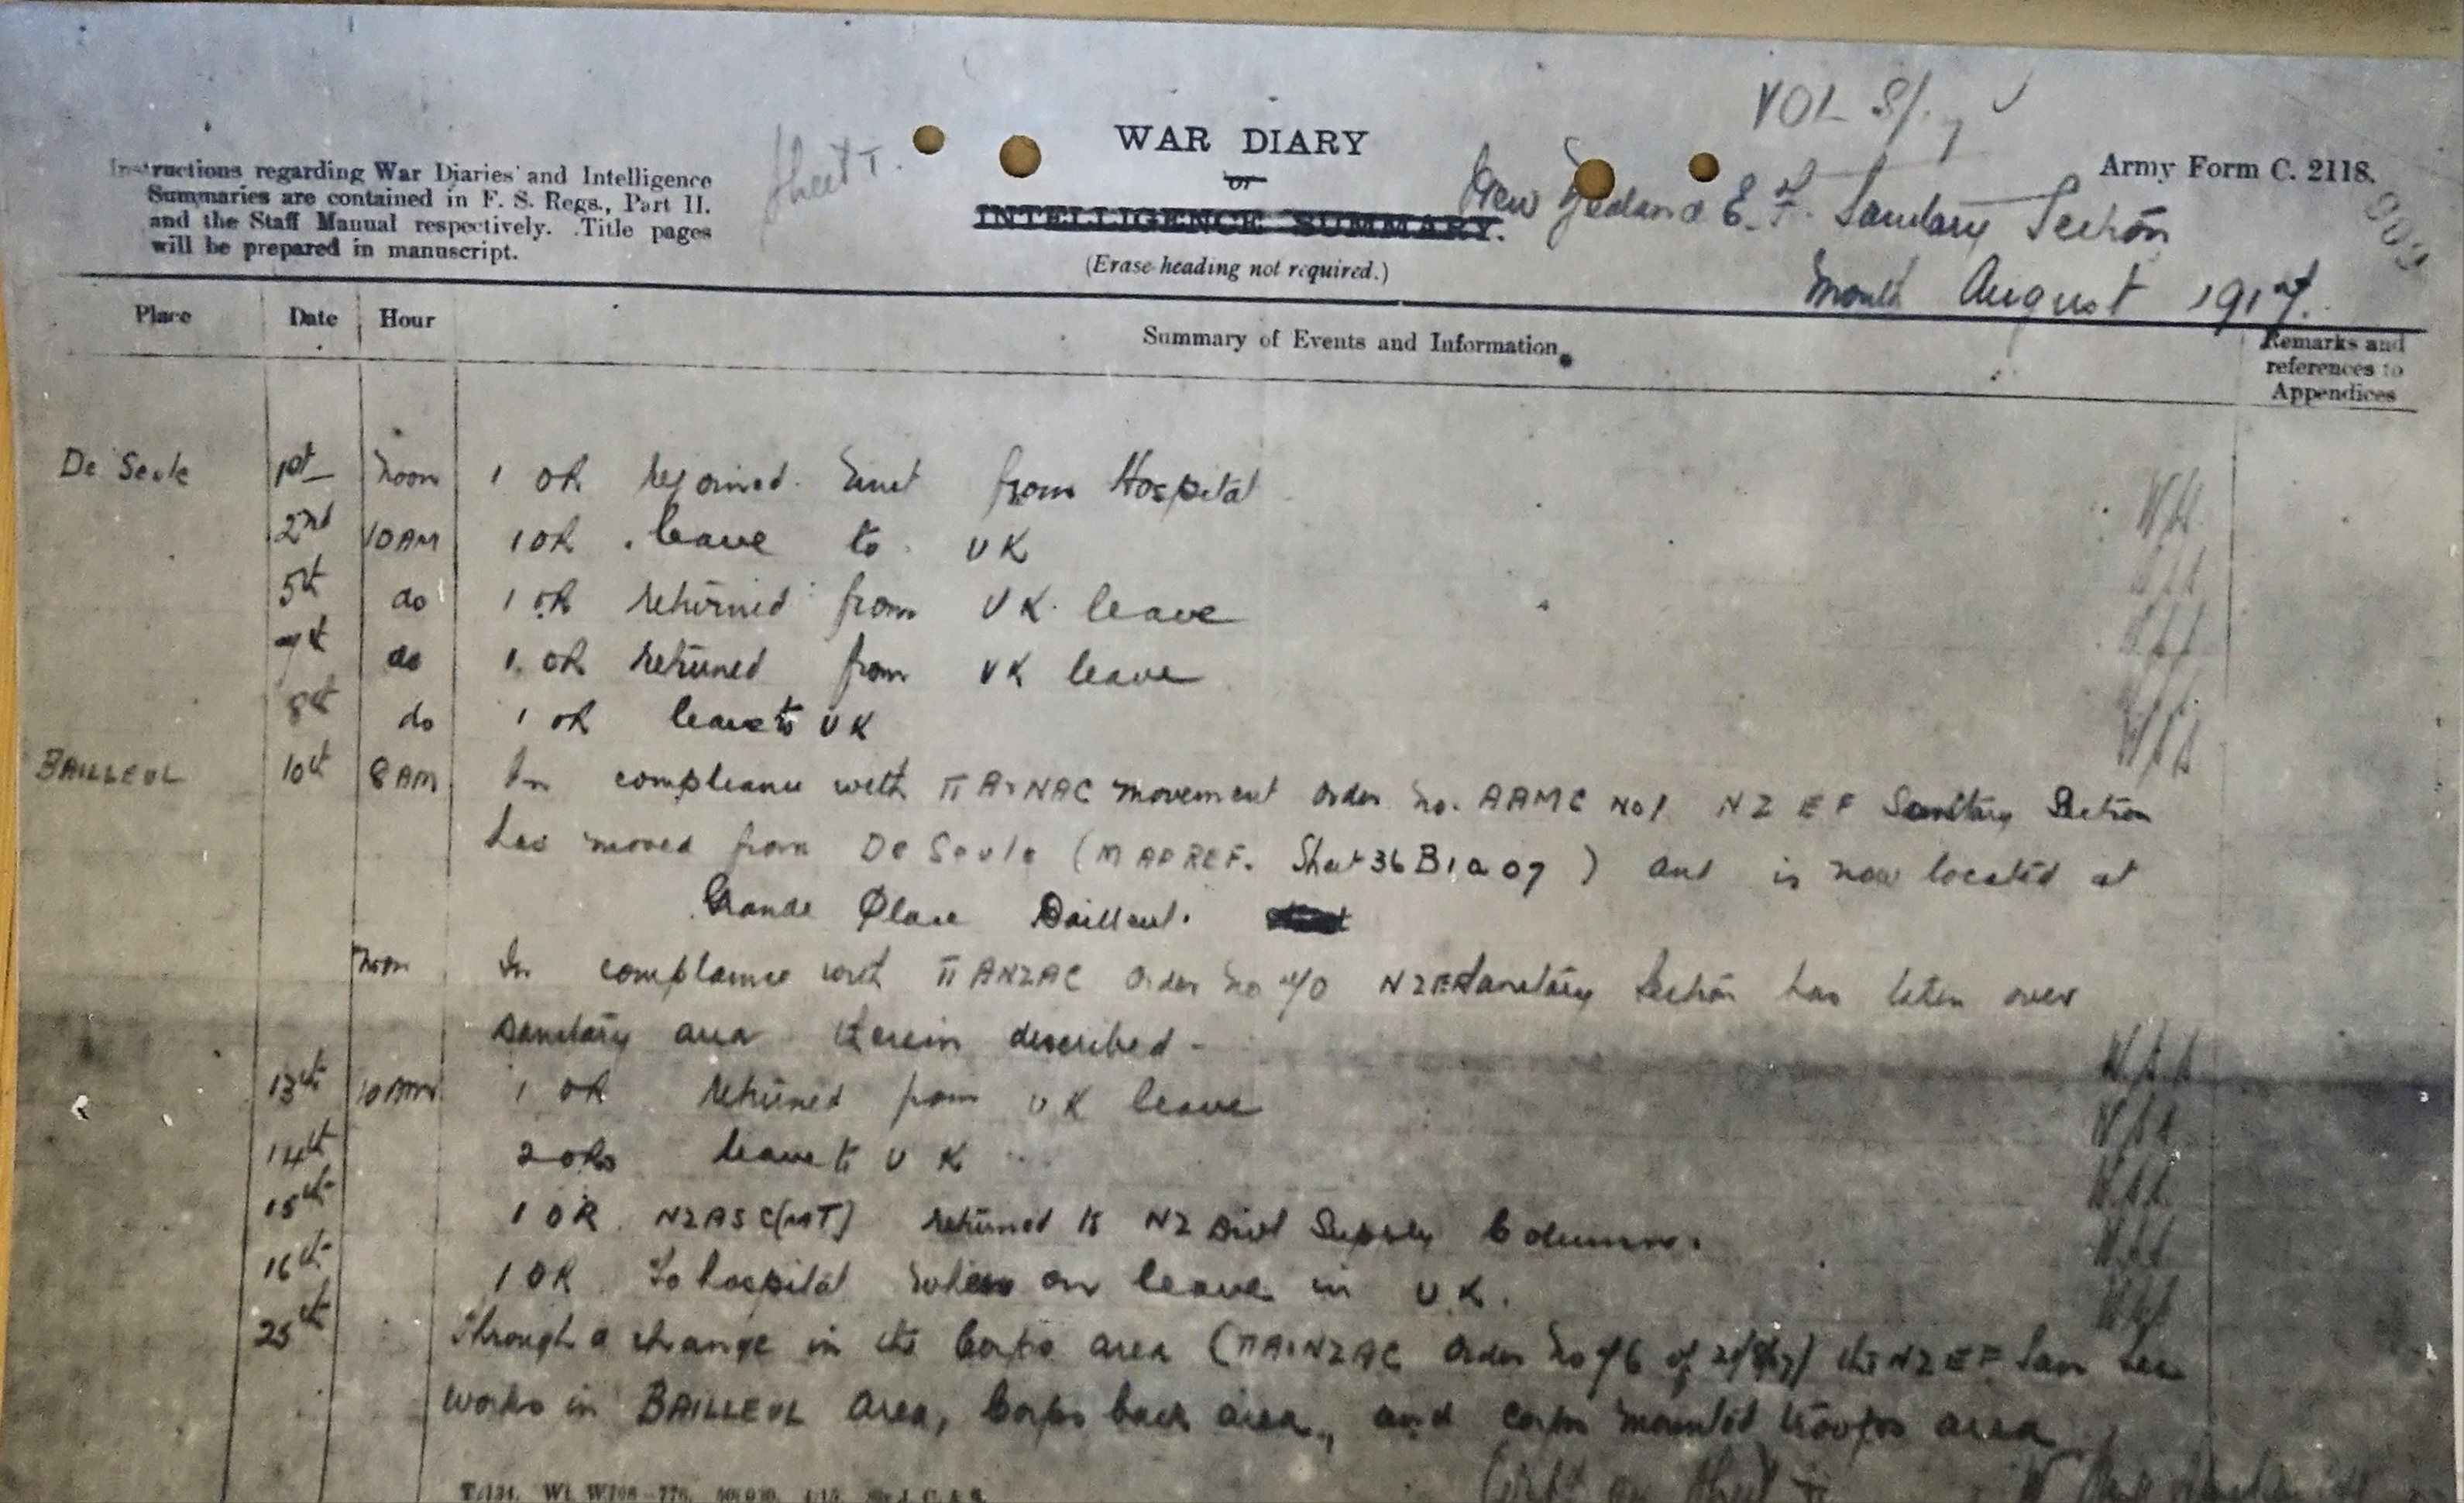 VOL
Sheet I.
WAR DIARY
or
INTELLIGENCE SUMMARY.
(Erase heading not required.)
Instructions regarding War Diaries and Intelligence
Summaries are contained in F. S. Regs., Part II.
and the Staff Manual respectively. Title pages
will be prepared in manuscript.
Army Form C. 2118.
New Zealand E. F. Sanitary Section
Month August 1917.
Place Date Hour Summary of Events and Information Remarks and references to Appendices
De Seule 1st noon 1 OR rejoined Unit from Hospital
2nd 10AM 1 OR leave to UK
5th do 1 OR returned from UK leave
7th do 1 OR returned from UK leave
8th do 1 OR leave to UK
BAILLEUL 10th 8AM In compliance with II ANZAC movement order No. AAMC No1 NZ EF Sanitary Section
has moved from De Seule (MAP REF. Sheet 36 B1a 07) and is now located at
Grande Place Bailleul.
Noon In compliance with II ANZAC Order No 70 NZEF Sanitary Section has taken over
sanitary area therein described -
13th 10AM 1 OR returned from UK leave
14th 2 ORs leave to UK
15th 1 OR NZASC(MT) returned to NZ Divl Supply Column.
16th 1 OR To hospital when on leave in U.K.
25th Through a change in the Corps area (II ANZAC Order No 76 of the NZEF San Sec
works in BAILLEUL area, Corps back area, and corps mounted troops area